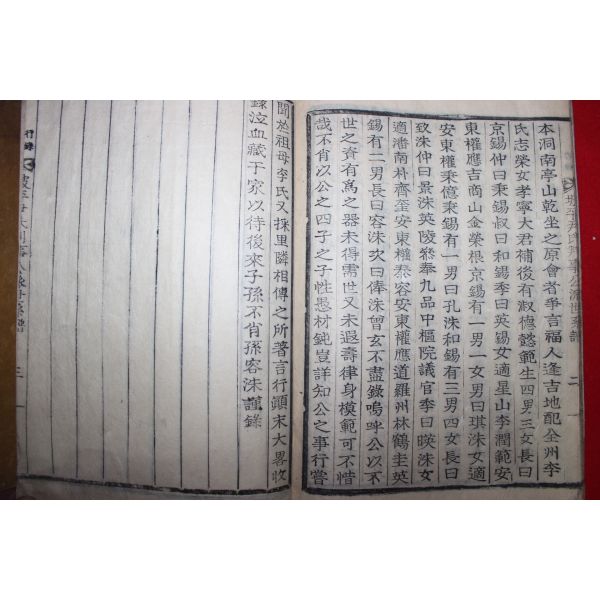 本洞南亭山乾坐之原會者爭言福人逢吉地配全州李
氏志榮女孝寧大君補後有淑德懿範生四男三女長曰
京錫仲曰秉錫叔曰和錫季曰英錫女適星山李潤範安
東權應吉商山金榮根京錫有一男一女男曰琪洙女適
安東權秉億秉錫有一男曰孔洙和錫有三男四女長曰
致洙仲曰景洙英陵參奉九品中樞院議官季曰暎洙女
適潘南朴齊奎安東權泰容安東權應道羅州林鶴圭英
錫有二男長曰容洙次曰俸洙曾玄不盡錄嗚呼公以不
世之資有爲之器未得需世又未遐壽律身模範可不惜
哉不肖以公之四子之子性愚材鈍豈詳知公之事行嘗
聞於祖母李氏又採里隣相傳之所著言行顚末大畧收
錄泣血藏于家以待後來子孫不肖孫容洙謹錄
行錄
三